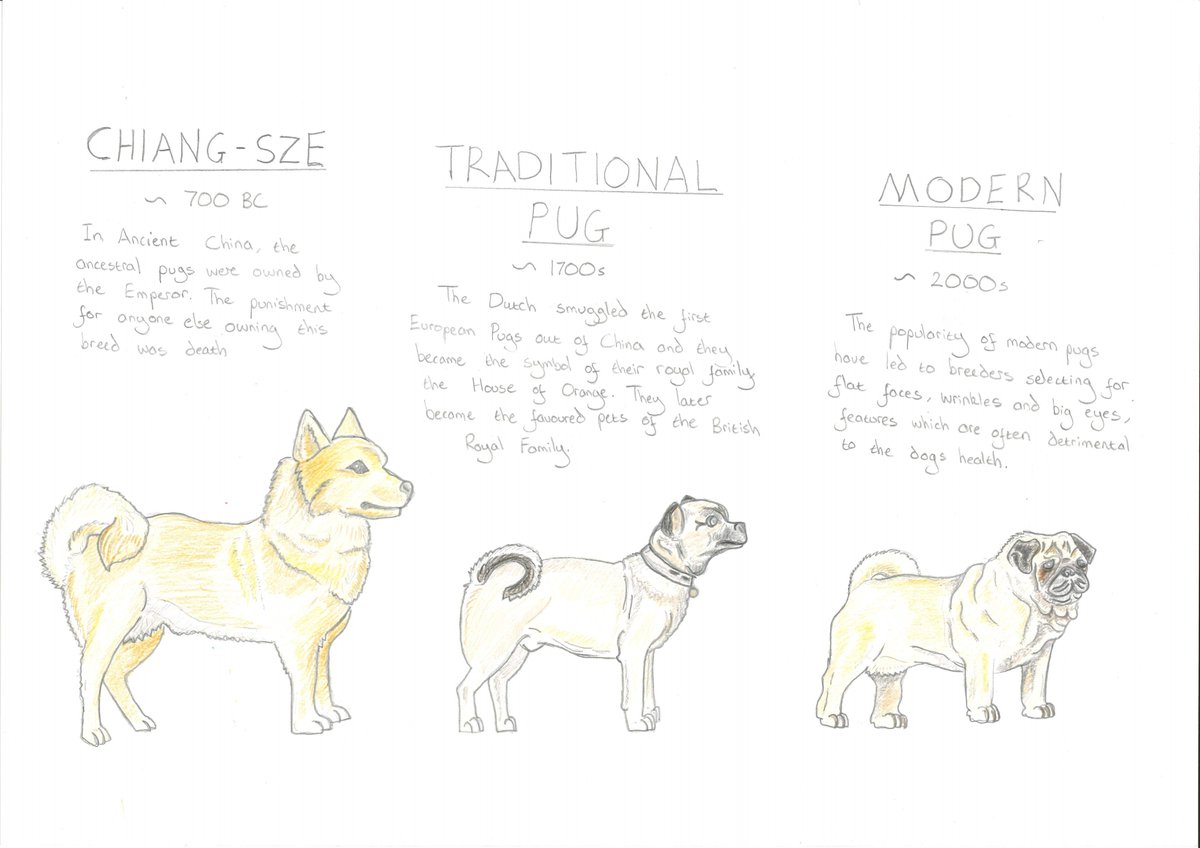 CHIANG-SZE
~ 700 BC
In Ancient China, the
ancestral pugs were owned by
the Emperor. The punishment
for anyone else owning this
breed was death
TRADITIONAL
PUG
~ 1700s
The Dutch smuggled the first
European Pugs out of China and they
became the symbol of their royal family,
the House of Orange. They later
become the favoured pets of the British
Royal Family.
MODERN
PUG
~ 2000s
The popularity of modern pugs
have led to breeders selecting for
flat faces, wrinkles and big eyes,
features which are often detrimental
to the dogs health.